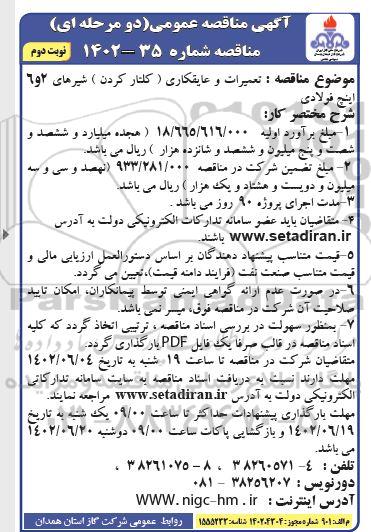 آگهی مناقصه عمومی(دو مرحله ای)
مناقصه شماره ۳۵ –۱۴۰۲
نوبت دوم
موضوع مناقصه : تعمیرات و عایقکاری ( کلتار کردن ) شیرهای ۲و۶
اینچ فولادی
شرح مختصر کار:
۱–مبلغ برآورد اولیه ۱۸/۶۶۵/۶۱۶/۰۰۰ ( هجده میلیارد و ششصد و
شصت و پنج میلیون و ششصد و شانزده هزار ) ریال می باشد.
۲–مبلغ تضمین شرکت در مناقصه ۹۳۳/۲۸۱/۰۰۰ (نهصد و سی و سه
میلیون و دویست و هشتاد و یک هزار ) ریال می باشد.
۳–مدت اجرای پروژه ۹۰ روز می باشد .
۴– متقاضیان باید عضو سامانه تدارکات الکترونیکی دولت به آدرس
www.setadiran.ir باشند.
۵–قیمت متناسب پیشنهاد دهندگان بر اساس دستورالعمل ارزیابی مالی و
قیمت متناسب صنعت نفت (فرایند دامنه قیمت)،تعیین می گردد.
۶–در صورت عدم ارائه گواهی ایمنی توسط پیمانکاران، امکان تایید
صلاحیت آن شرکت در مناقصه فوق، میسر نمی باشد.
۷– بمنظور سهولت در بررسی اسناد مناقصه ، ترتیبی اتخاذ گردد که کلیه
اسناد مناقصه در قالب صرفاً یک فایل PDF بارگذاری گردد.
متقاضیان شرکت در مناقصه تا ساعت ۱۹ شنبه به تاریخ ۱۴۰۲/۰۶/۰۴
مهلت دارند نسبت به دریافت اسناد مناقصه به سایت سامانه تدارکاتی
الکترونیکی دولت به آدرس www.setadiran.ir مراجعه نمایند.
مهلت بارگذاری پیشنهادات حداکثر تا ساعت ۰۹/۰۰ یک شنبه به تاریخ
۱۴۰۲/۰۶/۱۹ و بازگشایی پاکات ساعت ۰۹/۰۰ دوشنبه ۱۴۰۲/۰۶/۲۰ می
باشد.
تلفن : ۴– ۳۸۲۶۰۵۷۱ ، ۸– ۳۸۲۶۱۰۷۵
دورنویس : ۳۸۲۵۶۲۰۷ – ۰۸۱
آدرس اینترنت : www.nigc-hm.ir
روابط عمومی شرکت گاز استان همدان
م الف: ۹۰۱ شماره مجوز: ۱۴۰۲.۴۳۰۴ شناسه: ۱۵۵۵۲۳۲